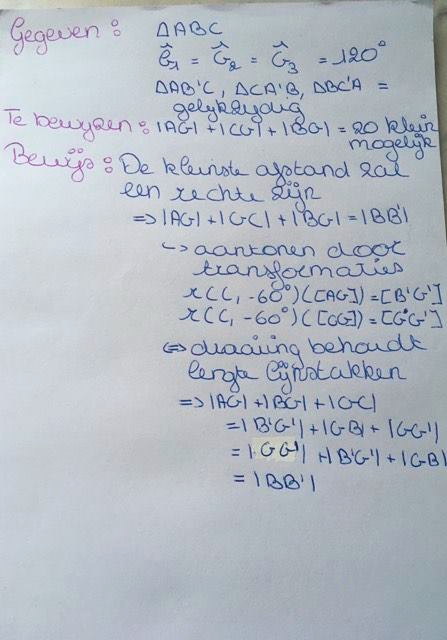 Gegeven : △ABC
Ĝ1 = Ĝ2 = Ĝ3 = 120°
△AB'C, △CA'B, △BC'A =
gelijkzijdig
Te bewijzen : |AG| + |CG| + |BG| = zo klein
mogelijk
Bewijs : De kleinste afstand zal
een rechte zijn
⇒ |AG| + |GC| + |BG| = |BB'|
↳ aantonen door
transformaties
r(C, -60°)([AG]) = [B'G']
r(C, -60°)([CG]) = [G'G']
⇔ draaiing behoudt
lengte lijnstukken
⇒ |AG| + |BG| + |GC|
= |B'G'| + |GB| + |GG'|
= |GG'| + |B'G'| + |GB|
= |BB'|